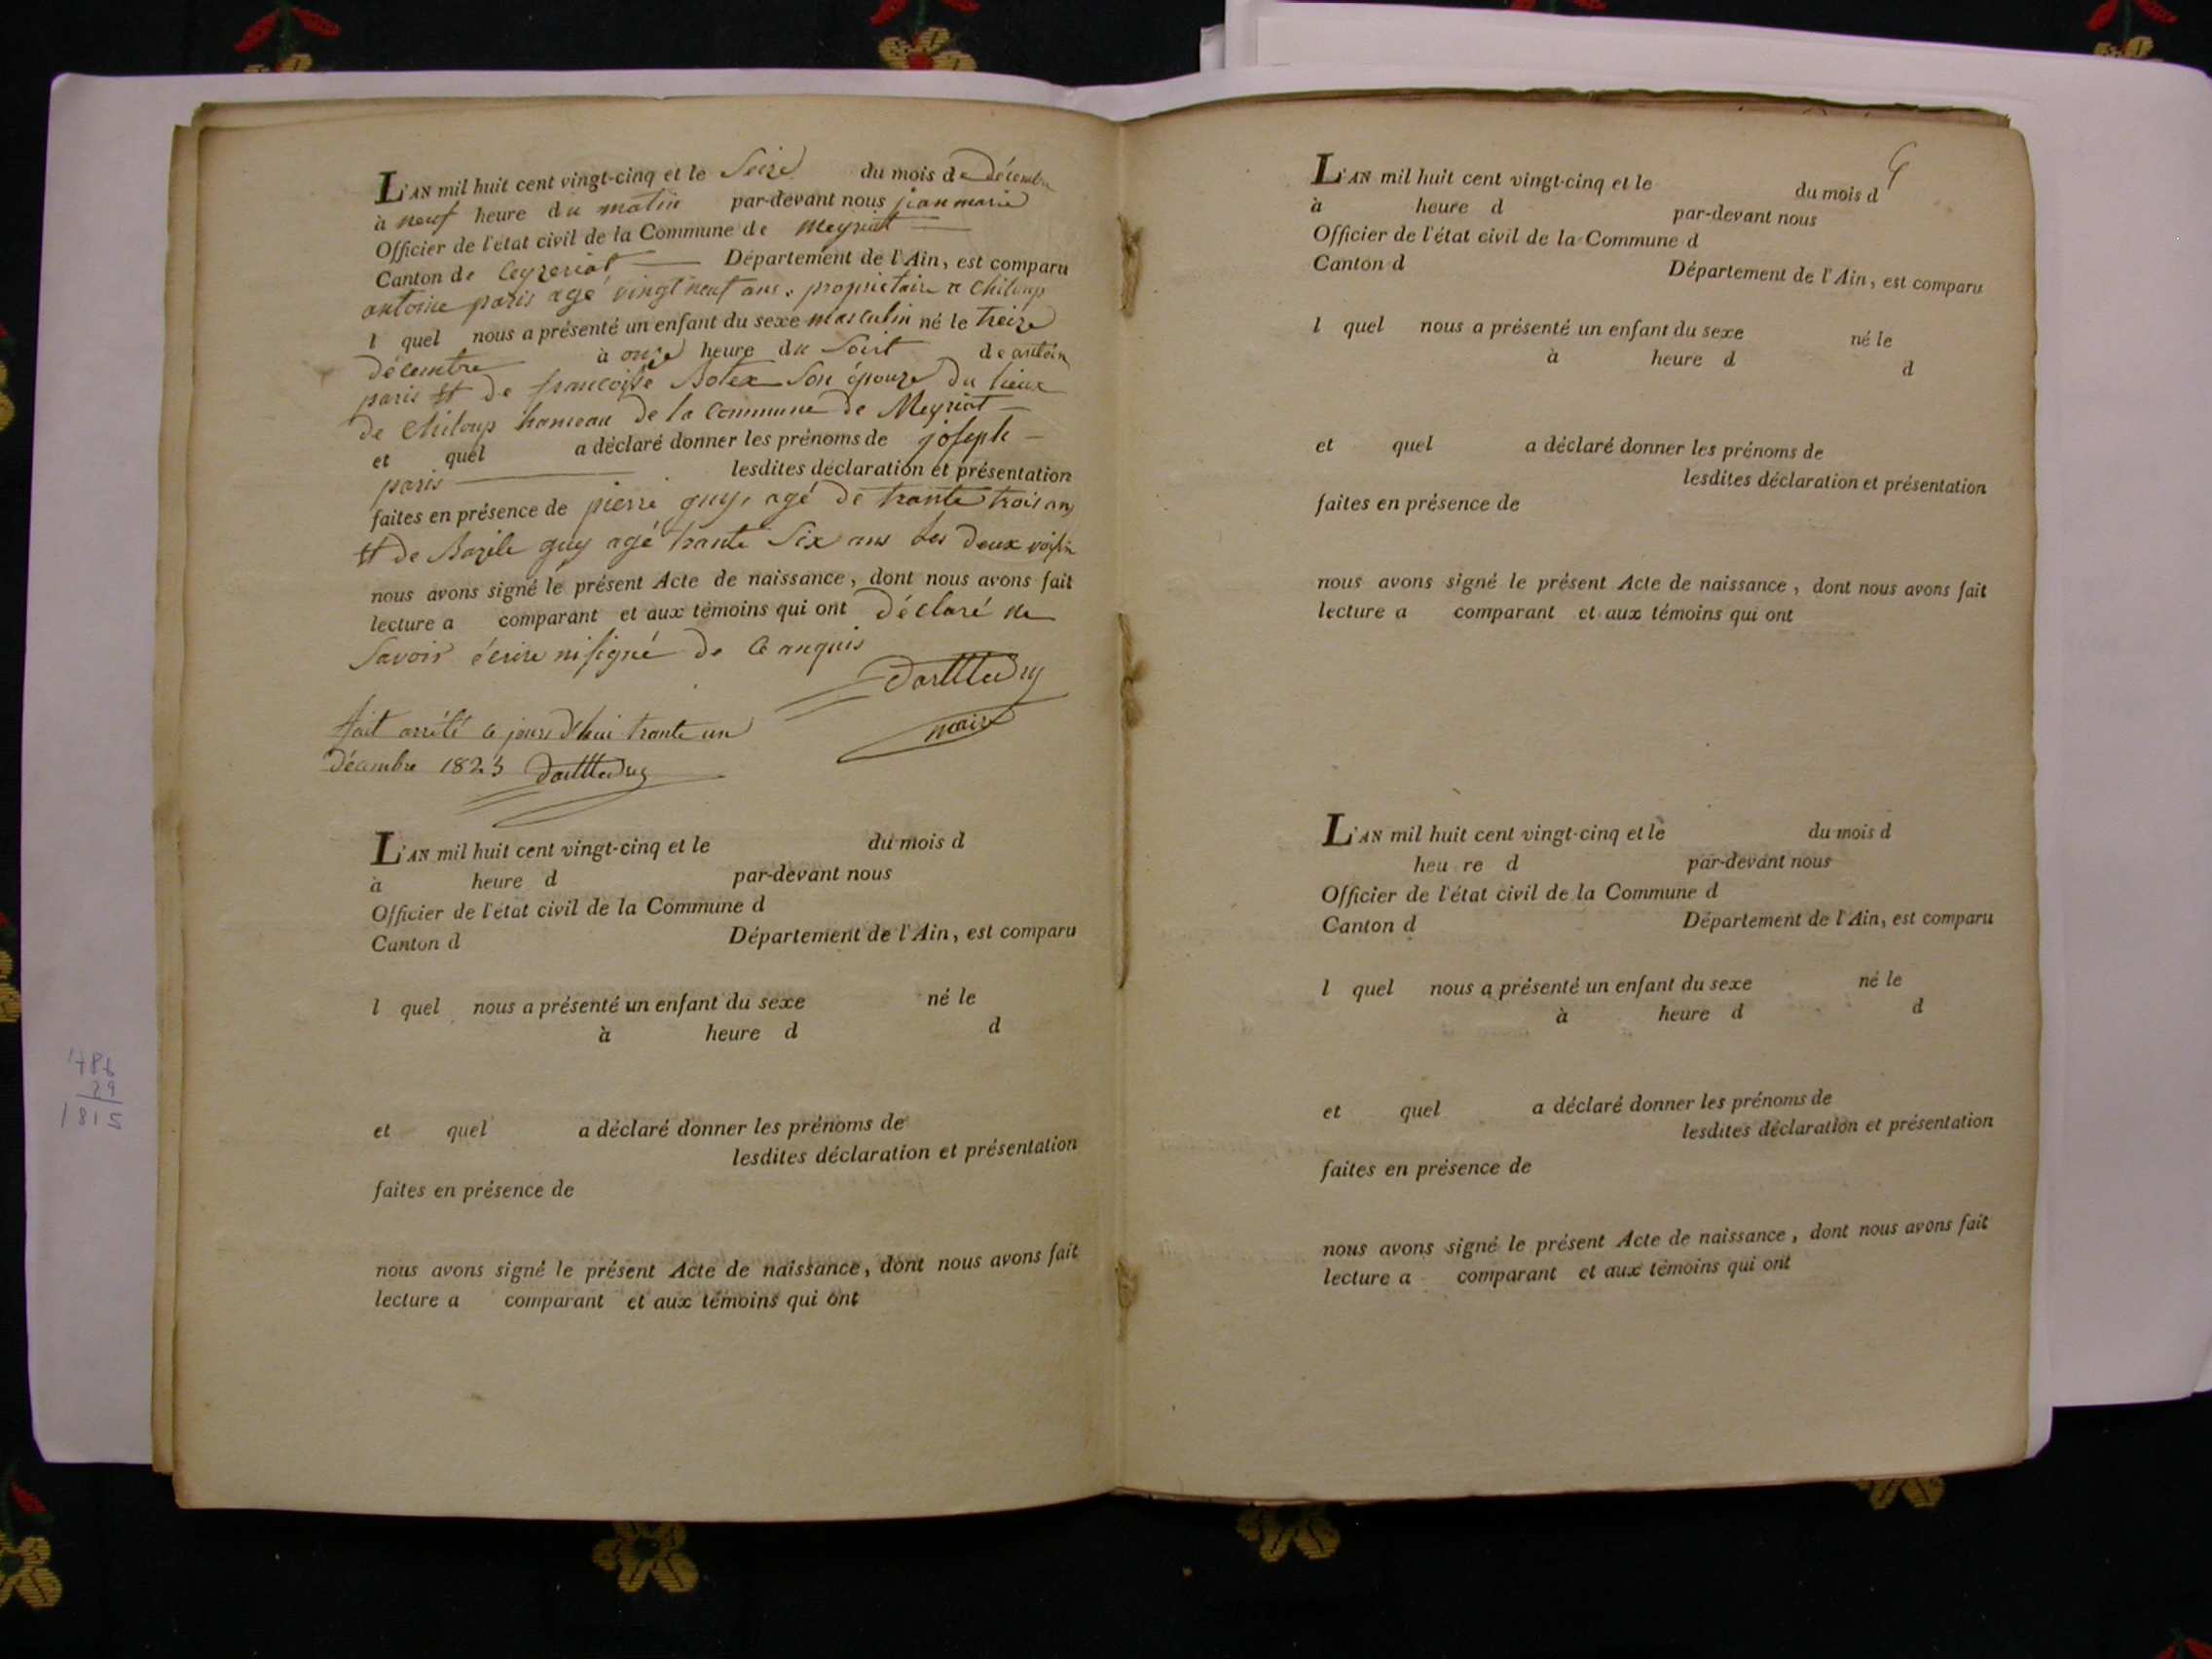 L'AN mil huit cent vingt-cinq et le Seize du mois de décembre
à neuf heure du matin par-devant nous jean marie
Officier de l'état civil de la Commune de Meyriat
Canton de Ceyzeriat Département de l'Ain, est comparu
antoine paris agé vingt neuf ans. propriétaire a Chiloup
l quel nous a présenté un enfant du sexe masculin né le treize
décembre à onze heure du Soirt de antoin
paris et de francoisse Botex Son épouze du lieux
de Chiloup hameau de la Commune de Meyriat
et quel a déclaré donner les prénoms de joseph
paris lesdites déclaration et présentation
faites en présence de pierre guy, agé de trante trois ans
et de Bazile guy agé trante Six ans Les deux voisin
nous avons signé le présent Acte de naissance, dont nous avons fait
lecture a comparant et aux témoins qui ont déclaré ne
Savoir écrire ni signé de Ce anquis
maire
fait arrété ce jours d'hui trante un
décembre 1825
L'AN mil huit cent vingt-cinq et le du mois d
à heure d par-devant nous
Officier de l'état civil de la Commune d
Canton d Département de l'Ain, est comparu
l quel nous a présenté un enfant du sexe né le
à heure d d
et quel a déclaré donner les prénoms de
lesdites déclaration et présentation
faites en présence de
nous avons signé le présent Acte de naissance, dont nous avons fait
lecture a comparant et aux témoins qui ont
486
29
1815
L'AN mil huit cent vingt-cinq et le du mois d
à heure d par-devant nous
Officier de l'état civil de la Commune d
Canton d Département de l'Ain, est comparu
l quel nous a présenté un enfant du sexe né le
à heure d d
et quel a déclaré donner les prénoms de
lesdites déclaration et présentation
faites en présence de
nous avons signé le présent Acte de naissance, dont nous avons fait
lecture a comparant et aux témoins qui ont
L'AN mil huit cent vingt-cinq et le du mois d
heu re d par-devant nous
Officier de l'état civil de la Commune d
Canton d Département de l'Ain, est comparu
l quel nous a présenté un enfant du sexe né le
à heure d d
et quel a déclaré donner les prénoms de
lesdites déclaration et présentation
faites en présence de
nous avons signé le présent Acte de naissance, dont nous avons fait
lecture a comparant et aux témoins qui ont